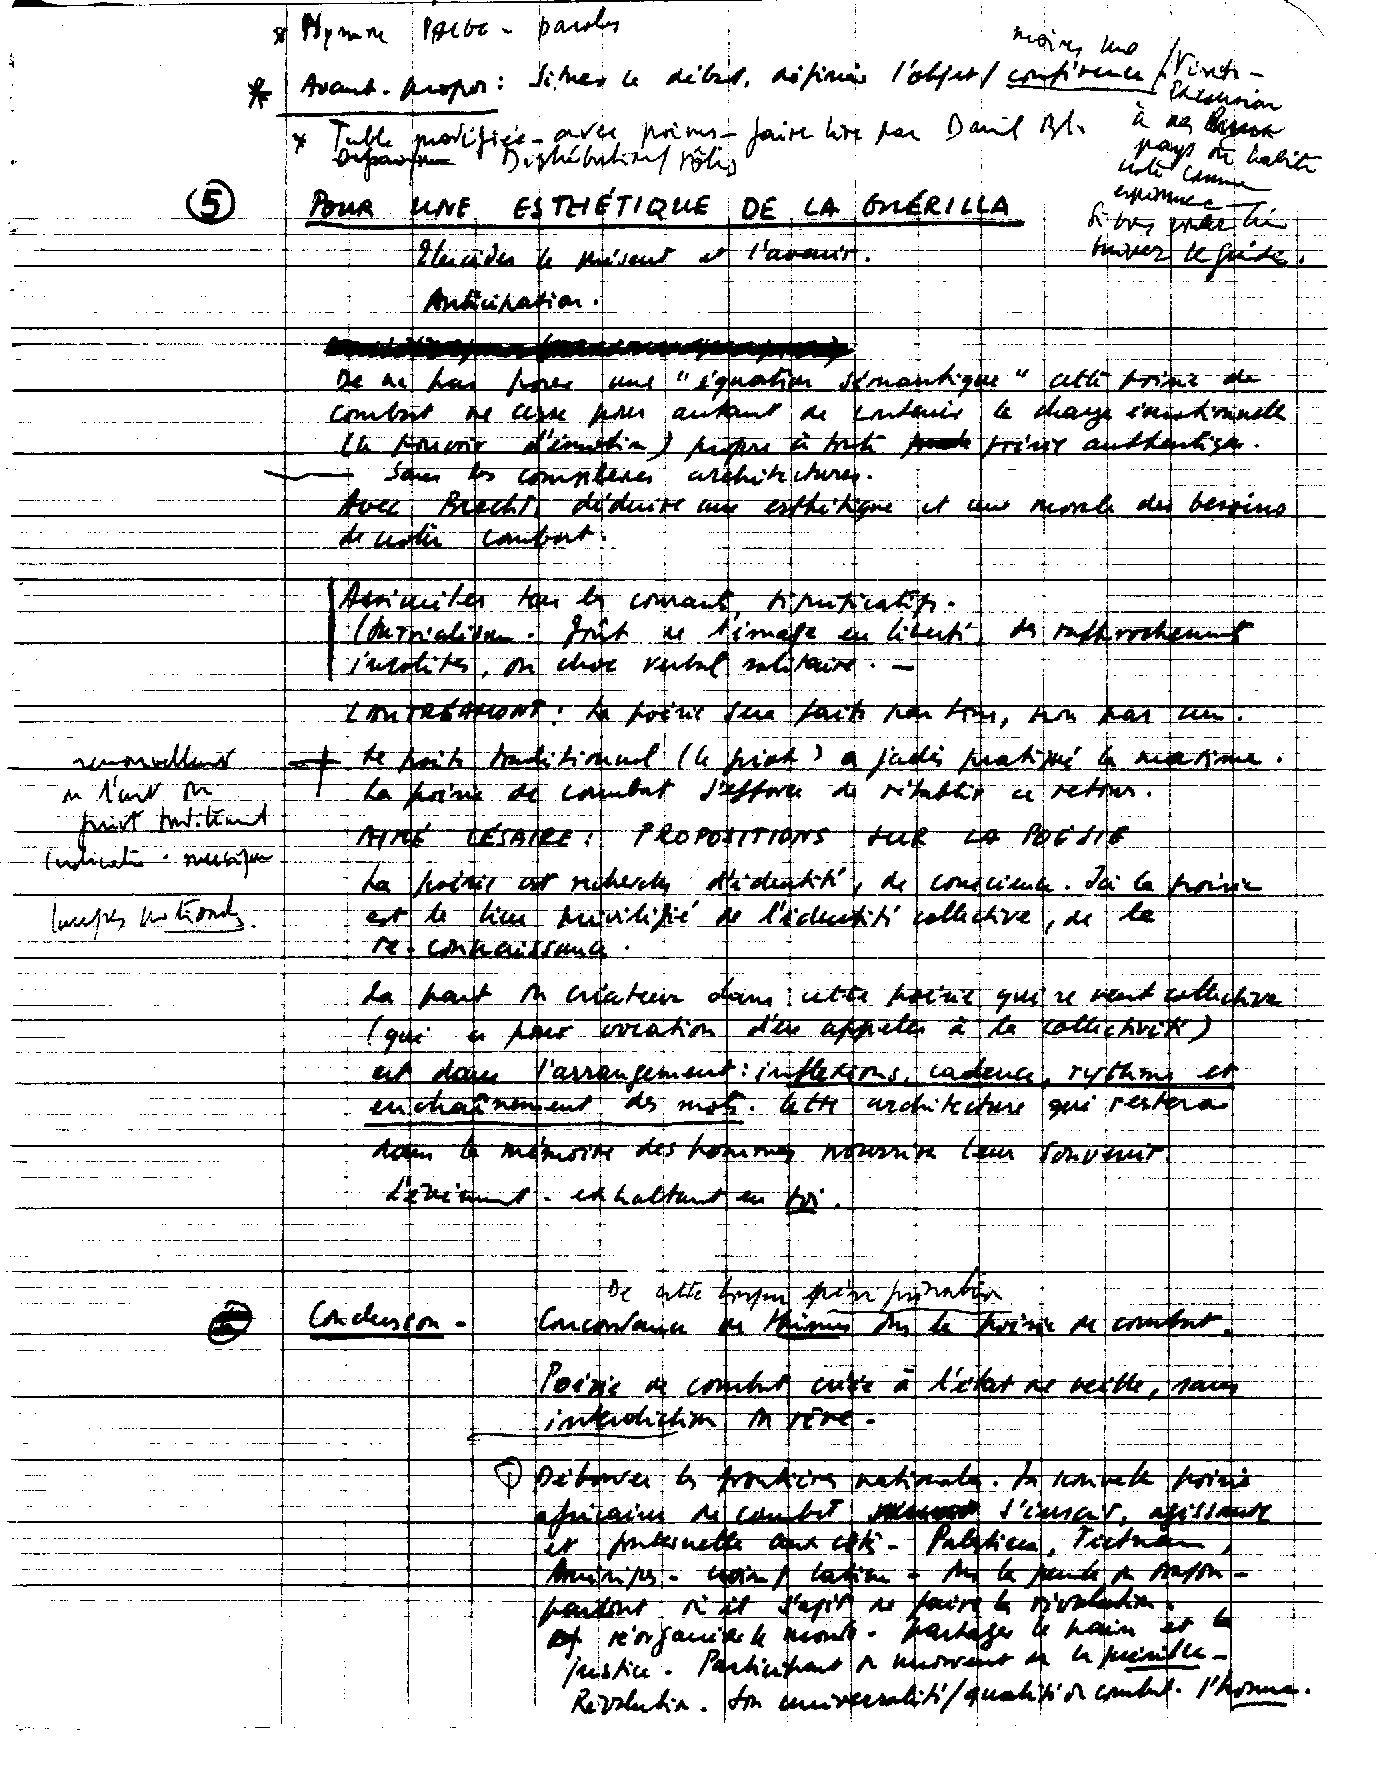 * Hymne PAIGC - paroles
* Avant-propos : Situer le début, définir l'objet / conférence /
moins une
à nos
pays où habite
notre commune
expérience -
Si vous voulez bien
suivez le guide.
* Table modifiée - avec poèmes - faire lire par
Distribution / rôles
5 POUR UNE ESTHÉTIQUE DE LA GUÉRILLA
Elucider le présent et l'avenir.
Anticipation.
De ne pas poser une "équation sémantique" cette poésie de
combat ne cesse pour autant de contenir la charge émotionnelle
(le pouvoir d'émotion) propre à toute poésie authentique.
- Sans les complexes architectures.
Avec Brecht, déduire une esthétique et une morale des besoins
de notre combat.
Assimiler tous les courants significatifs.
(Surréalisme. Goût de l'image en liberté, des rapprochements
insolites, du choc verbal salutaire. -
LAUTRÉAMONT : La poésie sera faite par tous, non par un.
Le poète traditionnel (le griot) a jadis pratiqué la maxime.
La poésie de combat s'efforce de rétablir ce retour.
renouvellement
de l'art du
griot traditionnel
musique
AIMÉ CÉSAIRE : PROPOSITIONS SUR LA POÉSIE
La poésie est recherche d'identité, de conscience. Ici la poésie
est le lieu privilégié de l'identité collective, de la
re-connaissance.
La part du créateur dans cette poésie qui se veut collective
(qui a pour vocation d'en appeler à la collectivité)
est dans l'arrangement : inflexions, cadence, rythme et
enchaînement des mots. Cette architecture qui restera
dans la mémoire des hommes nourrira leur souvenir.
L'événement - exhaltant en soi.
De cette longue
Conclusion - Concordance de thèmes ds la poésie de combat.
Poésie de combat créée à l'état de veille, sans
interdiction du rêve.
Déborder les frontières nationales. La nouvelle poésie
africaine de combat s'inscrit, agissante
et fraternelle aux côtés - Palestine, Vietnam,
Amériques - noire / latine -
partout où il s'agit de faire la révolution.
réorganiser le monde - partager le pain et la
justice. Participant du mouvement de la
Révolution. Son universalité / qualité de combat. l'homme.